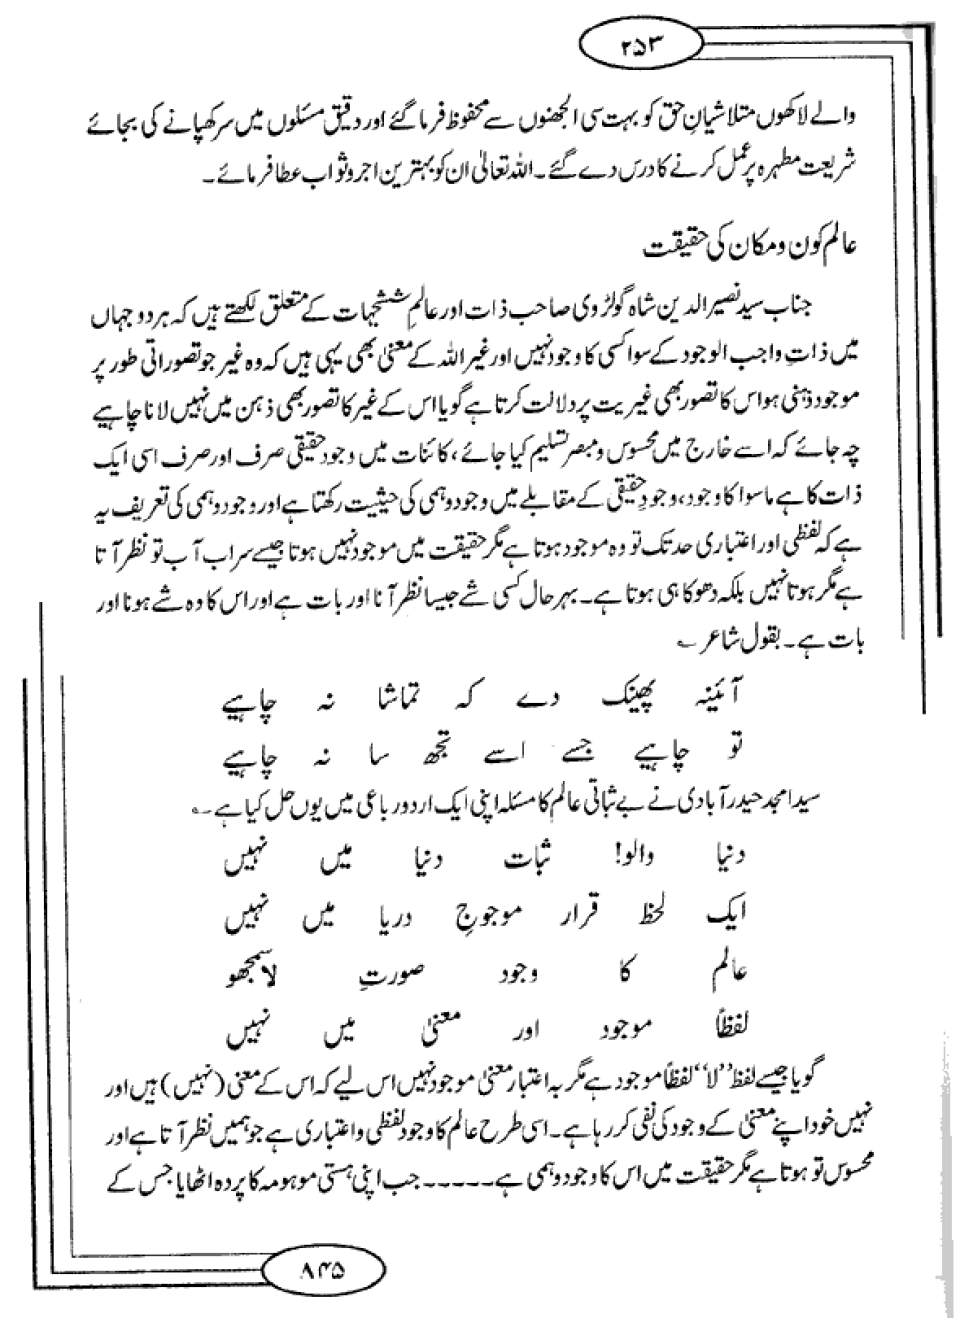 ۲۵۳
والے لاکھوں متلاشیانِ حق کو بہت سی الجھنوں سے محفوظ فرما گئے اور دقیق مسئلوں میں سر کھپانے کی بجائے
شریعت مطہرہ پر عمل کرنے کا درس دے گئے۔ اللہ تعالیٰ ان کو بہترین اجر و ثواب عطا فرمائے۔
عالم کون و مکان کی حقیقت
جناب سید نصیر الدین شاہ گولڑوی صاحب ذات اور عالمِ ششجہات کے متعلق لکھتے ہیں کہ ہر دو جہاں
میں ذاتِ واجب الوجود کے سوا کسی کا وجود نہیں اور غیر اللہ کے معنیٰ بھی یہی ہیں کہ وہ غیر جو تصوراتی طور پر
موجود ذہنی ہو اس کا تصور بھی غیریت پر دلالت کرتا ہے گویا اس کے غیر کا تصور بھی ذہن میں نہیں لانا چاہیے
چہ جائے کہ اسے خارج میں محسوس و مبصر تسلیم کیا جائے، کائنات میں وجود حقیقی صرف اور صرف اسی ایک
ذات کا ہے ماسوا کا وجود، وجودِ حقیقی کے مقابلے میں وجود وہمی کی حیثیت رکھتا ہے اور وجود وہمی کی تعریف یہ
ہے کہ لفظی اور اعتباری حد تک تو وہ موجود ہوتا ہے مگر حقیقت میں موجود نہیں ہوتا جیسے سراب آب تو نظر آتا
ہے مگر ہوتا نہیں بلکہ دھوکا ہی ہوتا ہے۔ بہر حال کسی شے جیسا نظر آنا اور بات ہے اور اس کا وہ شے ہونا اور
بات ہے۔ بقول شاعر ؎
آئینہ پھینک دے کہ تماشا نہ چاہیے
تو چاہیے جسے اسے تجھ سا نہ چاہیے
سید امجد حیدر آبادی نے بے ثباتی عالم کا مسئلہ اپنی ایک اردو رباعی میں یوں حل کیا ہے۔ ؎
دنیا والو! ثبات دنیا میں نہیں
ایک لحظ قرار موجوجِ دریا میں نہیں
عالم کا وجود صورتِ لا سمجھو
لفظاً موجود اور معنیٰ میں نہیں
گویا جیسے لفظ ’’لا‘‘ لفظاً موجود ہے مگر بہ اعتبار معنیٰ موجود نہیں اس لیے کہ اس کے معنی (نہیں) ہیں اور
نہیں خود اپنے معنیٰ کے وجود کی نفی کر رہا ہے۔ اسی طرح عالم کا وجود لفظی و اعتباری ہے جو ہمیں نظر آتا ہے اور
محسوس تو ہوتا ہے مگر حقیقت میں اس کا وجود وہمی ہے۔۔۔۔۔ جب اپنی ہستی موہومہ کا پردہ اٹھایا جس کے
۸۴۵